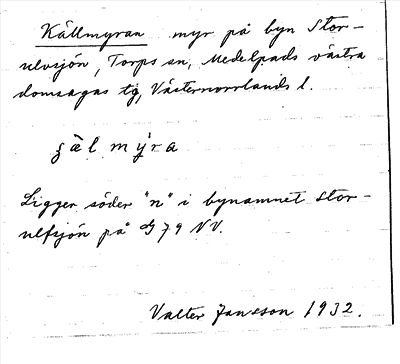 Källmyran myr på byn Stor-
ulvsjön, Torps sn, Medelpads västra
domsagas tg, Västernorrlands l.
Ligger söder "n" i bynamnet Stor-
ulfsjön på G 79 NV.
Valter Jansson 1932.